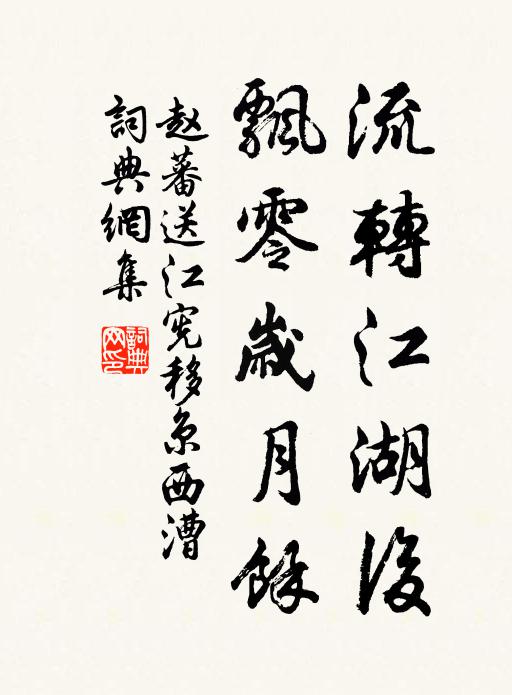 流轉江湖後
飄零歲月餘
赵蕃送江宪移京西漕
詞典網集
詞典网印